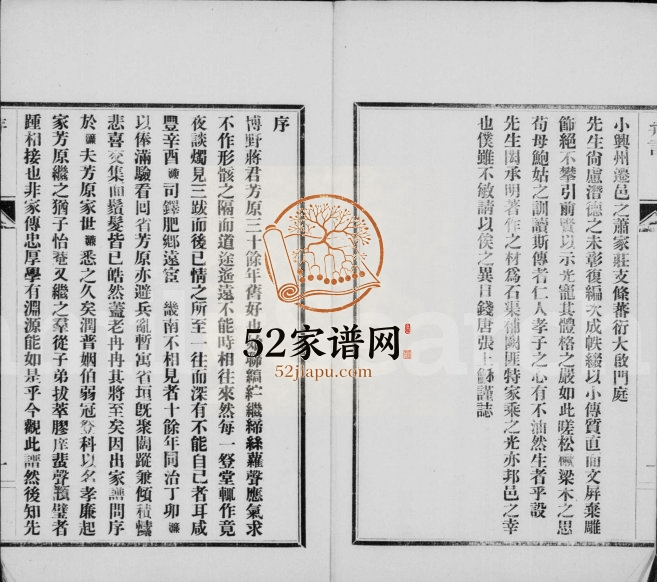 小興州遷邑之蕭家莊支條蕃衍大啟門庭
先生尙慮潛德之未彰復編次成帙綴以小傳質直而文屏棄雕
飾絕不攀引前賢以示光寵其體格之嚴如此嗟松楸梁木之思
荀母鮑姑之訓讀斯傳者仁人孝子之心有不油然生者乎設
先生因承明著作之材爲石渠補闕匪特家乘之光亦邦邑之幸
也僕雖不敏請以俟之異日錢唐張上龢謹誌
序
博野蔣君芳原三十餘年舊好也 聯縞紵繼締絲蘿聲應氣求
不作形骸之隔而道途遙遠不能時相往來然每一登堂輒作竟
夜談燭見三跋而後已情之所至一往而深有不能自已者耳咸
豐辛酉 濂 司鐸肥鄉遠宦 畿南不相見者十餘年同治丁卯 濂
以俸滿驗看囘省芳原亦避兵亂暫寓省垣旣聚闊蹤兼傾積愫
悲喜交集而鬚髮皆已皓然蓋老冉冉其將至矣因出家譜問序
於 濂 夫芳原家世 濂 悉之久矣潤普姻伯弱冠登科以名孝廉起
家芳原繼之猶子怡菴又繼之羣從子弟拔萃膠庠蜚聲黌璧者
踵相接也非家傳忠厚學有淵源能如是乎今觀此譜然後知先
52家谱网
52jiapu.com